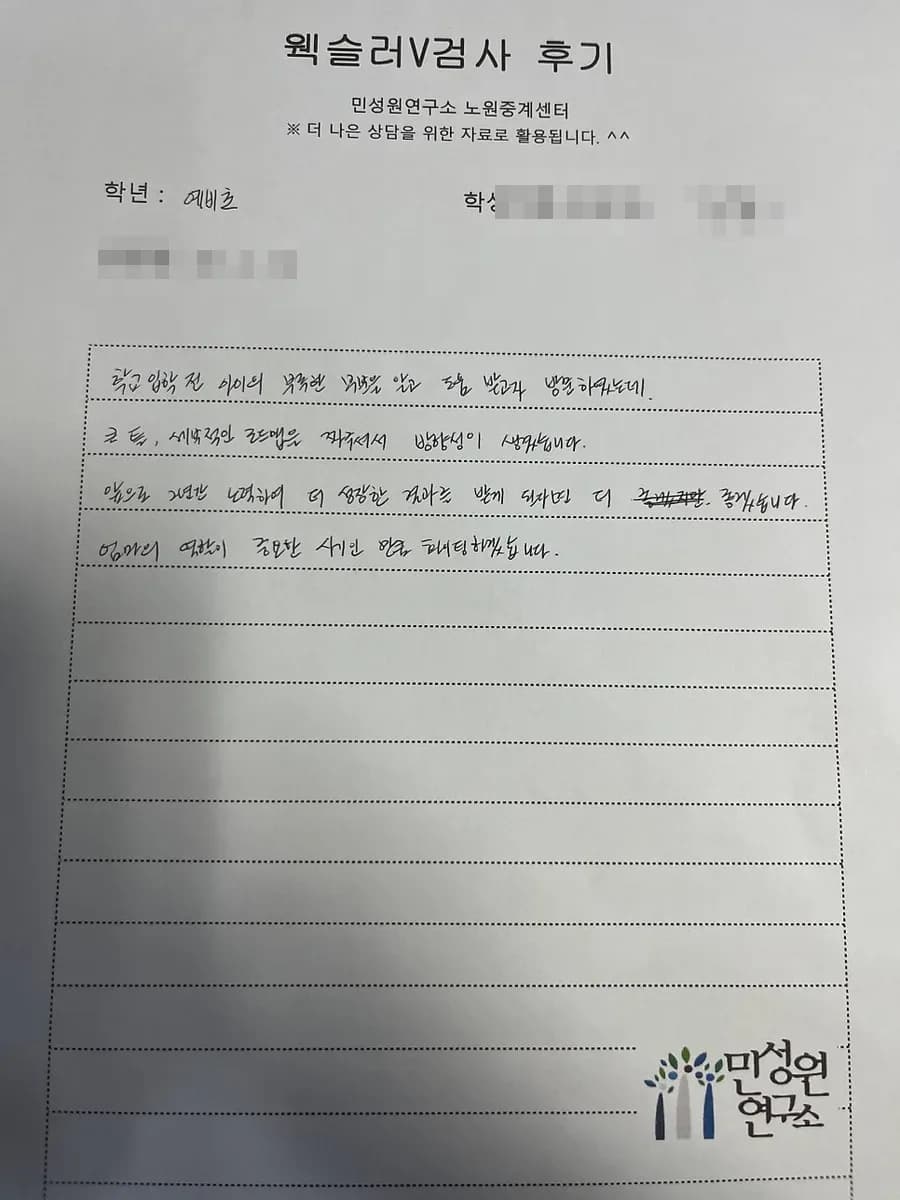 웩슬러V검사 후기
민성원연구소 노원중계센터
※ 더 나은 상담을 위한 자료로 활용됩니다. ^^
학년 : 예비초
학생
학교 입학 전 아이의 부족한 부분을 알고 도움 받고자 방문하였는데,
큰 틀, 세부적인 로드맵을 짜주셔서 방향성이 생겼습니다.
앞으로 2년간 노력하여 더 성장한 결과를 받게 된다면 더 좋겠습니다.
엄마의 역할이 중요한 시기인 만큼 파이팅하겠습니다.
민성원
연구소